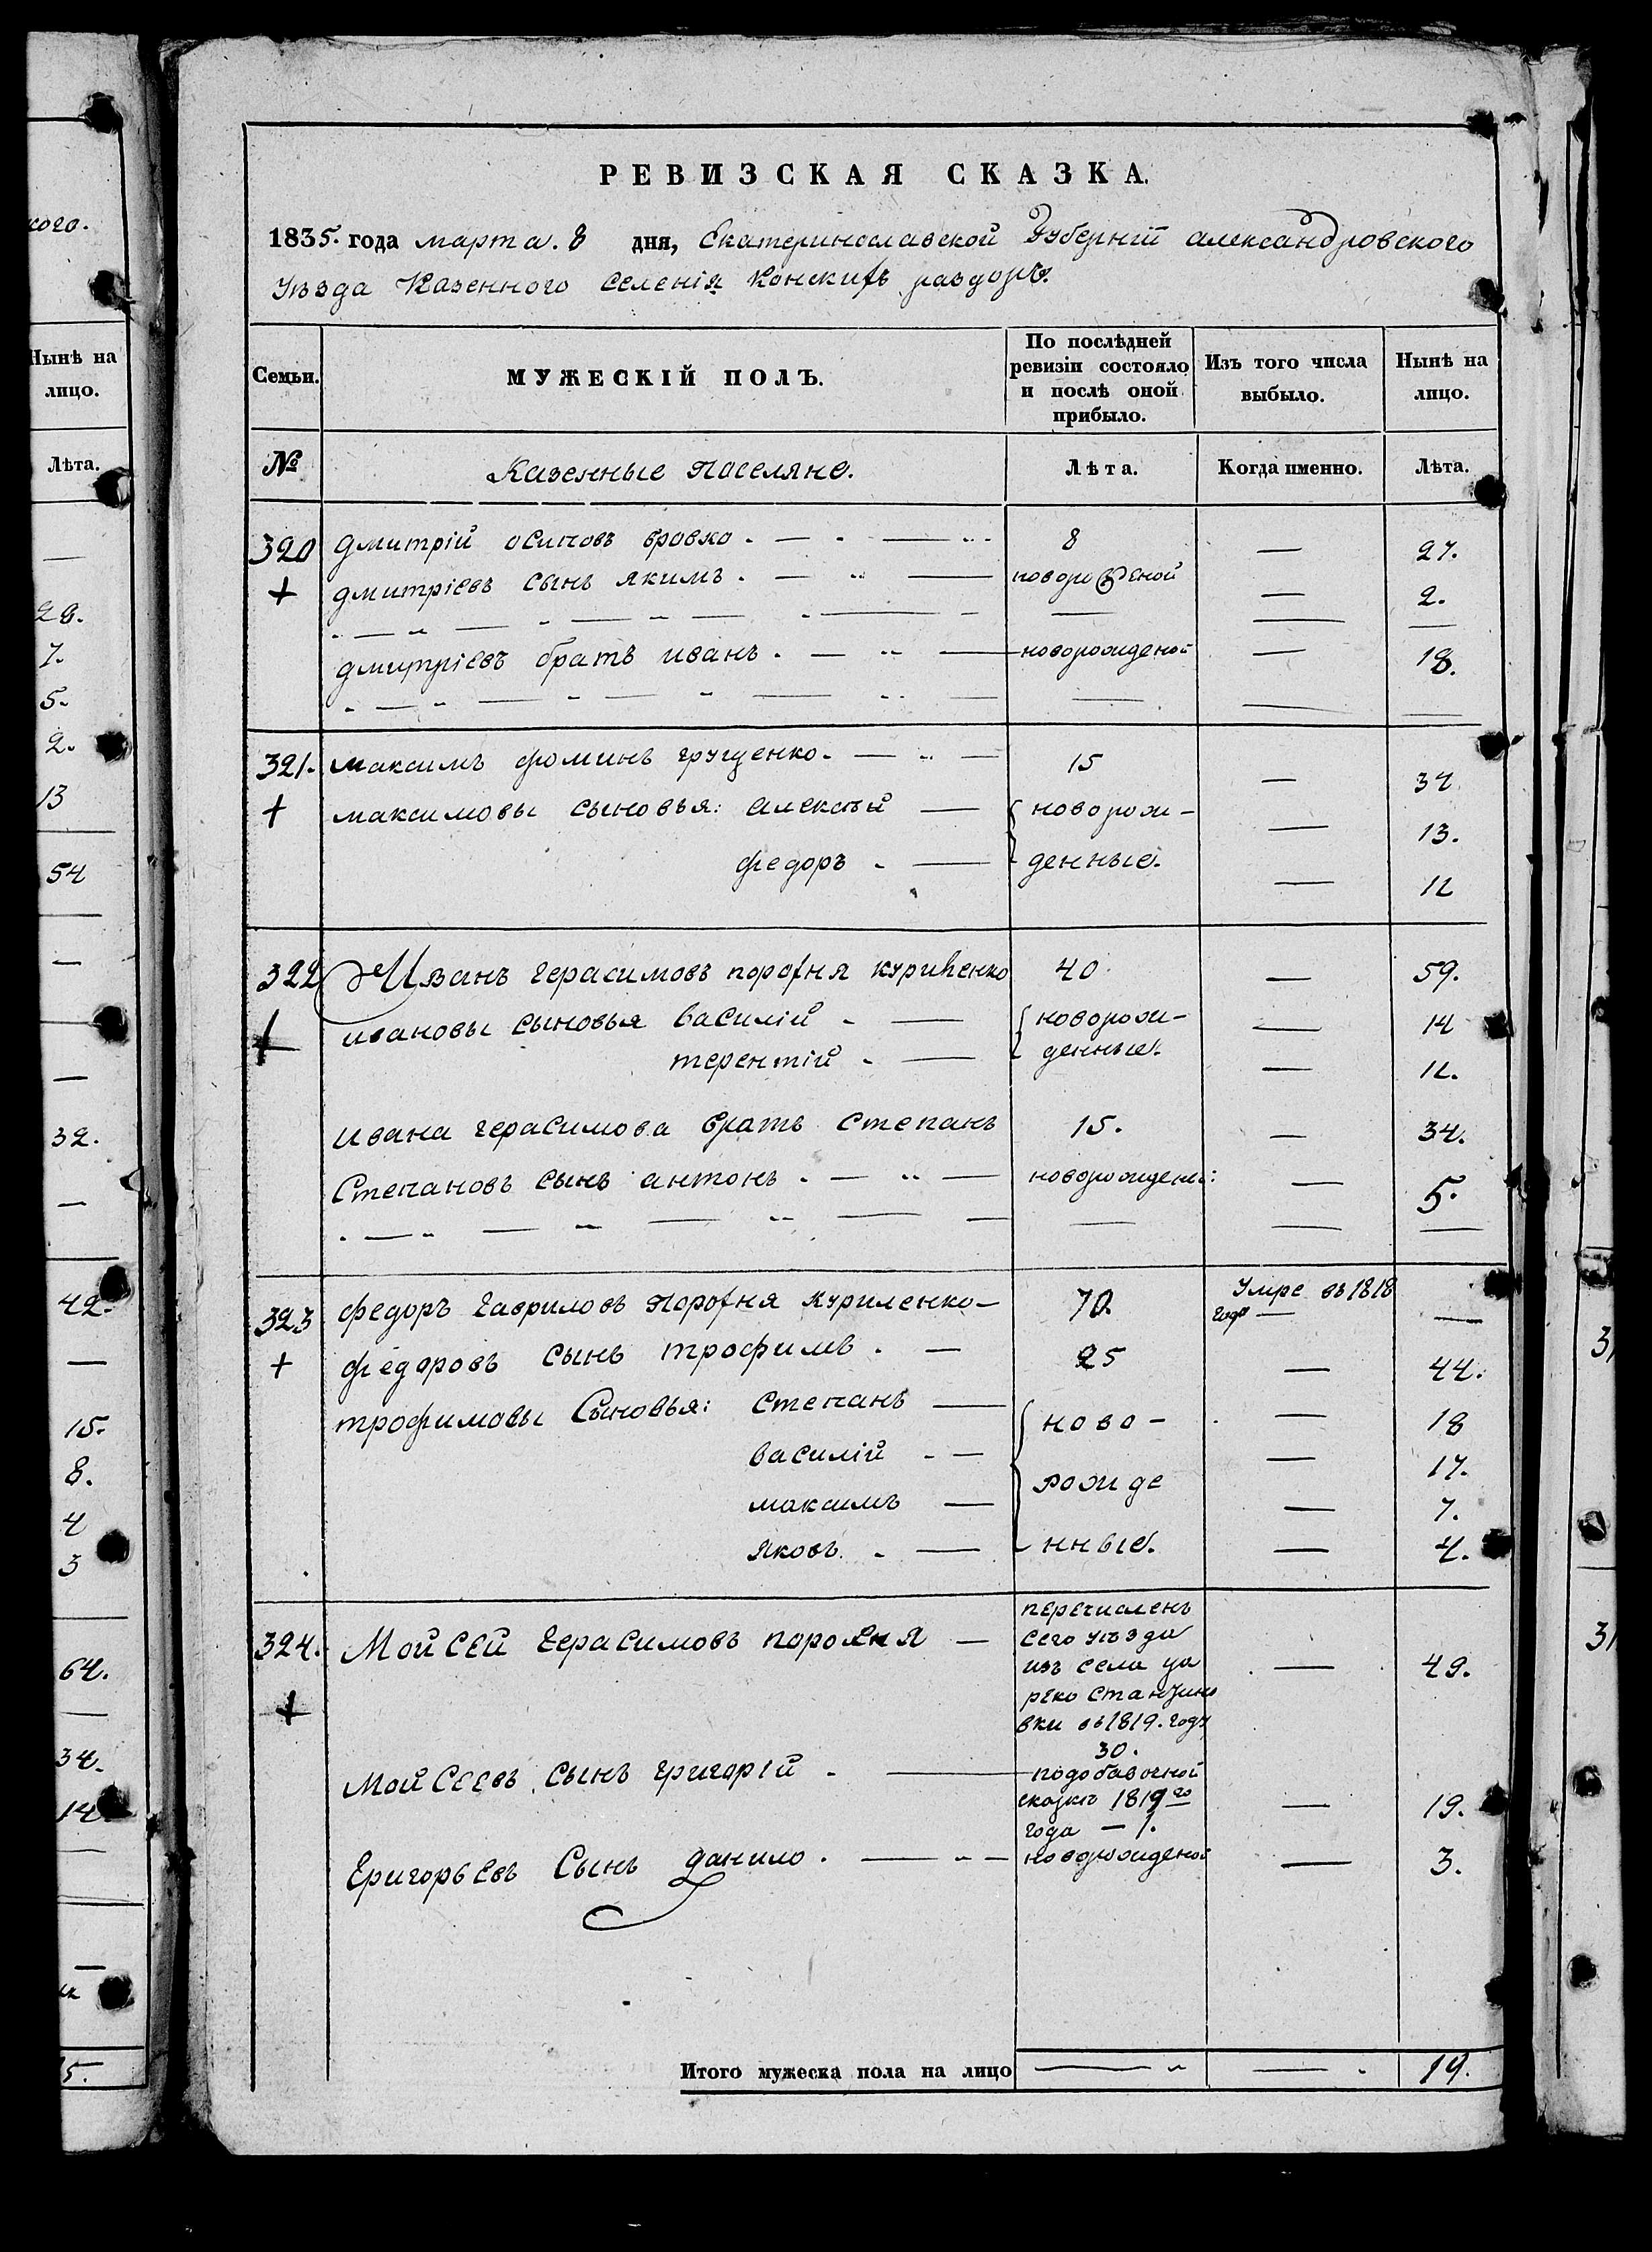 кого.
Нынѣ на
лицо.
Лѣта.
28.
7.
5.
2.
13
54
32.
42.
15.
8.
4
3
64.
34.
14
5.
РЕВИЗСКАЯ СКАЗКА.
1835. года марта. 8 дня, Екатеринославской Губерніи александровского
уѣзда Казенного Селенія Конскихъ раздоръ.
Семьи. МУЖЕСКІЙ ПОЛЪ. По послѣдней ревизіи состояло и послѣ оной прибыло. Изъ того числа выбыло. Нынѣ на лицо.
№ Казенные Поселяне. Лѣта. Когда именно. Лѣта.
320 дмитрій осиповъ бровко. — 8 — 27.
+ дмитріевъ сынъ якимъ. — новорожденой — 2.
дмитріевъ братъ иванъ. — новорожденой — 18.
321. максимъ фоминъ — 15 — 34
+ максимовы сыновья: алексѣй — новорож- — 13.
федоръ. — денные. — 12
322 Иванъ герасимовъ порохня куриленко 40. — 59.
+ ивановы сыновья василій. — новорож- — 14
терентій. — денные. — 12.
ивана герасимова братъ степанъ 15. — 34.
Степановъ сынъ антонъ. — новорожденый: — 5.
323 федоръ гавриловъ порохня куриленко — 70. Умре въ 1818 годѣ — —
+ федоровъ сынъ трофимъ. — 25 — 44.
трофимовы Сыновья: степанъ — ново- — 18
василій. — — 17.
максимъ — рожде — 7.
яковъ. — нные. — 4.
324. Мойсей герасимовъ порохня — перечисленъ
сего уѣзда
изъ села ца
реко станҭино
вки въ 1819. году
30. — 49.
+
Мойсеевъ сынъ григорій. — подобавочной
сказкѣ 1819го
года — 1. — 19.
Григорьевъ Сынъ данило. — новорожденой — 3.
Итого мужеска пола на лицо — — 19.